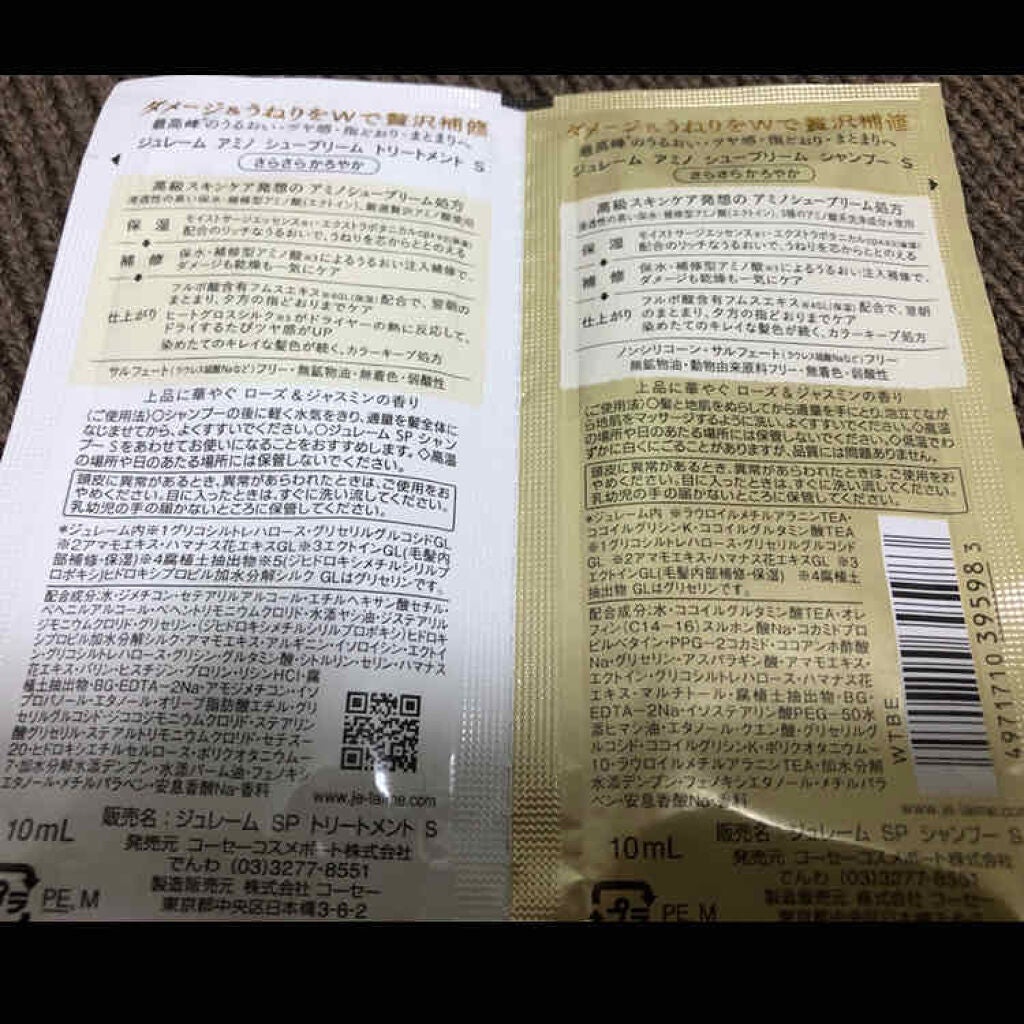 ダメージ&うねりをWで贅沢補修
最高峰*のうるおい・ツヤ感・指どおり・まとまりへ
ジュレーム アミノ シュープリーム トリートメント S
さらさらかろやか
高級スキンケア発想の アミノシュープリーム処方
浸透性の高い保水・補修型アミノ酸(エクトイン)、厳選贅沢アミノ酸使用
保湿 モイストサージエッセンス※1・エクストラボタニカル
配合のリッチなうるおいで、うねりを芯からととのえる
補修 保水・補修型アミノ酸※3によるうるおい注入補修で、
ダメージも乾燥も一気にケア
仕上がり フルボ酸含有フムスエキス※4GL(保湿)配合で、翌朝の
まとまり、夕方の指どおりまでケア
ヒートグロスシルク※5がドライヤーの熱に反応して、
ドライするたびツヤ感がUP
染めたてのキレイな髪色が続く、カラーキープ処方
サルフェート(ラウレス硫酸Naなど)フリー・無鉱物油・無着色・弱酸性
上品に華やぐ ローズ&ジャスミンの香り
〈ご使用法〉○シャンプーの後に軽く水気をきり、適量を髪全体に
なじませてから、よくすすいでください。○ジュレーム SP シャン
プー S をあわせてお使いになることをおすすめします。◇高温
の場所や日のあたる場所には保管しないでください。
頭皮に異常があるとき、異常があらわれたときは、ご使用をお
やめください。目に入ったときは、すぐに洗い流してください。
乳幼児の手の届かないところに保管してください。
*ジュレーム内※1グリコシルトレハロース・グリセリルグルコシドGL
※2アマモエキス・ハマナス花エキスGL※3エクトインGL(毛髪内
部補修・保湿)※4腐植土抽出物※5(ジヒドロキシメチルシリルプ
ロポキシ)ヒドロキシプロピル加水分解シルク GLはグリセリンです。
配合成分:水・ジメチコン・セテアリルアルコール・エチルヘキサン酸セチル・
ベヘニルアルコール・ベヘントリモニウムクロリド・水添ヤシ油・ジステアリル
ジモニウムクロリド・グリセリン・(ジヒドロキシメチルシリルプロポキシ)ヒドロキ
シプロピル加水分解シルク・アマモエキス・アルギニン・イソロイシン・エクトイ
ン・グリコシルトレハロース・グリシン・グルタミン酸・シトルリン・セリン・ハマナス
花エキス・バリン・ヒスチジン・プロリン・リシンHCl・腐
植土抽出物・BG・EDTA-2Na・アモジメチコン・イソ
プロパノール・エタノール・オリーブ脂肪酸エチル・グリ
セリルグルコシド・ジココジモニウムクロリド・ステアリン
酸グリセリル・ステアルトリモニウムクロリド・セテス-
20・ヒドロキシエチルセルロース・ポリクオタニウム-
7・加水分解水添デンプン・水添パーム油・フェノキシ
エタノール・メチルパラベン・安息香酸Na・香料
www.je-laime.com
10mL
販売名:ジュレーム SP トリートメント S
発売元 コーセーコスメポート株式会社
でんわ (03)3277-8551
製造販売元 株式会社 コーセー
東京都中央区日本橋3-6-2
プラ PE, M
ダメージ&うねりをWで贅沢補修
最高峰*のうるおい・ツヤ感・指どおり・まとまりへ
ジュレーム アミノ シュープリーム シャンプー S
さらさらかろやか
高級スキンケア発想の アミノシュープリーム処方
浸透性の高い保水・補修型アミノ酸(エクトイン)、3種のアミノ酸系洗浄成分※使用
保湿 モイストサージエッセンス※1・エクストラボタニカル
配合のリッチなうるおいで、うねりを芯からととのえる
補修 保水・補修型アミノ酸※3によるうるおい注入補修で、
ダメージも乾燥も一気にケア
仕上がり フルボ酸含有フムスエキス※4GL(保湿)配合で、翌朝
のまとまり、夕方の指どおりまでケア
染めたてのキレイな髪色が続く、カラーキープ処方
ノンシリコーン・サルフェート(ラウレス硫酸Naなど)フリー
無鉱物油・動物由来原料フリー・無着色・弱酸性
上品に華やぐ ローズ&ジャスミンの香り
〈ご使用法〉○髪と地肌をぬらしてから適量を手にとり、泡立てなが
ら地肌をマッサージするように洗い、よくすすいでください。◇高温
の場所や日のあたる場所には保管しないでください。◇低温でわ
ずかに白くにごることがありますが、品質には問題ありません。
頭皮に異常があるとき、異常があらわれたときは、ご使用をお
やめください。目に入ったときは、すぐに洗い流してください。
乳幼児の手の届かないところに保管してください。
*ジュレーム内 ※ラウロイルメチルアラニンTEA・
ココイルグリシンK・ココイルグルタミン酸TEA
※1グリコシルトレハロース・グリセリルグルコシド
GL ※2アマモエキス・ハマナス花エキスGL ※3
エクトインGL(毛髪内部補修・保湿) ※4腐植土
抽出物 GLはグリセリンです。
配合成分:水・ココイルグルタミン酸TEA・オレ
フィン(C14-16)スルホン酸Na・コカミドプロ
ピルベタイン・PPG-2コカミド・ココアンホ酢酸
Na・グリセリン・アスパラギン酸・アマモエキス・
エクトイン・グリコシルトレハロース・ハマナス花
エキス・マルチトール・腐植土抽出物・BG・
EDTA-2Na・イソステアリン酸PEG-50水
添ヒマシ油・エタノール・クエン酸・グリセリルグ
ルコシド・ココイルグリシンK・ポリクオタニウム-
10・ラウロイルメチルアラニンTEA・加水分解
水添デンプン・フェノキシエタノール・メチルパラ
ベン・安息香酸Na・香料
WTBE
4971710 395983
www.je-laime.com
10mL
販売名:ジュレーム SP シャンプー S
発売元 コーセーコスメポート株式会社
でんわ (03)3277-8551
製造販売元 株式会社 コーセー
東京都中央区日本橋3-6-2
プラ PE, M